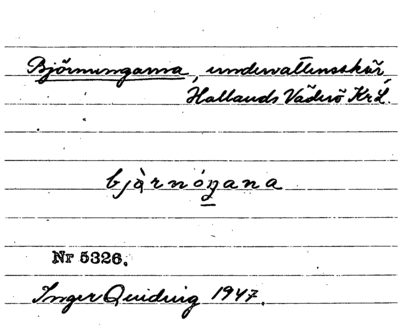 Björnungarna, undervattensskär,
Hallands Väderö Kr.L.
bjàrnóŋana
Nr 5326.
Inger Quiding 1947.